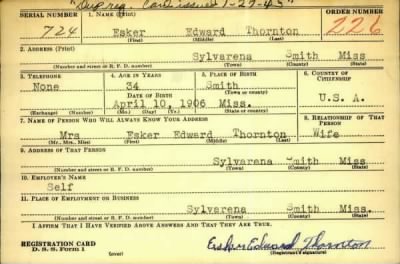 "Dup reg. Card issued 1-27-45"
SERIAL NUMBER 1. NAME (Print) ORDER NUMBER
724 Esker Edward Thornton 226
(First) (Middle) (Last)
2. ADDRESS (Print)
Sylvarena Smith Miss
(Number and street or R. F. D. number) (Town) (County) (State)
3. TELEPHONE 4. AGE IN YEARS 5. PLACE OF BIRTH 6. COUNTRY OF CITIZENSHIP
None 34 Smith
(Town or county)
DATE OF BIRTH
April 10, 1906 Miss. U.S.A.
(Exchange) (No.) (Mo.) (Day) (Yr.) (State or country)
7. NAME OF PERSON WHO WILL ALWAYS KNOW YOUR ADDRESS 8. RELATIONSHIP OF THAT PERSON
Mrs Esker Edward Thornton Wife
(Mr., Mrs., Miss) (First) (Middle) (Last)
9. ADDRESS OF THAT PERSON
Sylvarena Smith Miss.
(Number and street or R. F. D. number) (Town) (County) (State)
10. EMPLOYER'S NAME
Self
11. PLACE OF EMPLOYMENT OR BUSINESS
Sylvarena Smith Miss.
(Number and street or R. F. D. number) (Town) (County) (State)
I AFFIRM THAT I HAVE VERIFIED ABOVE ANSWERS AND THAT THEY ARE TRUE.
REGISTRATION CARD
D. S. S. Form 1 (over) Esker Edward Thornton
(Registrant's signature)